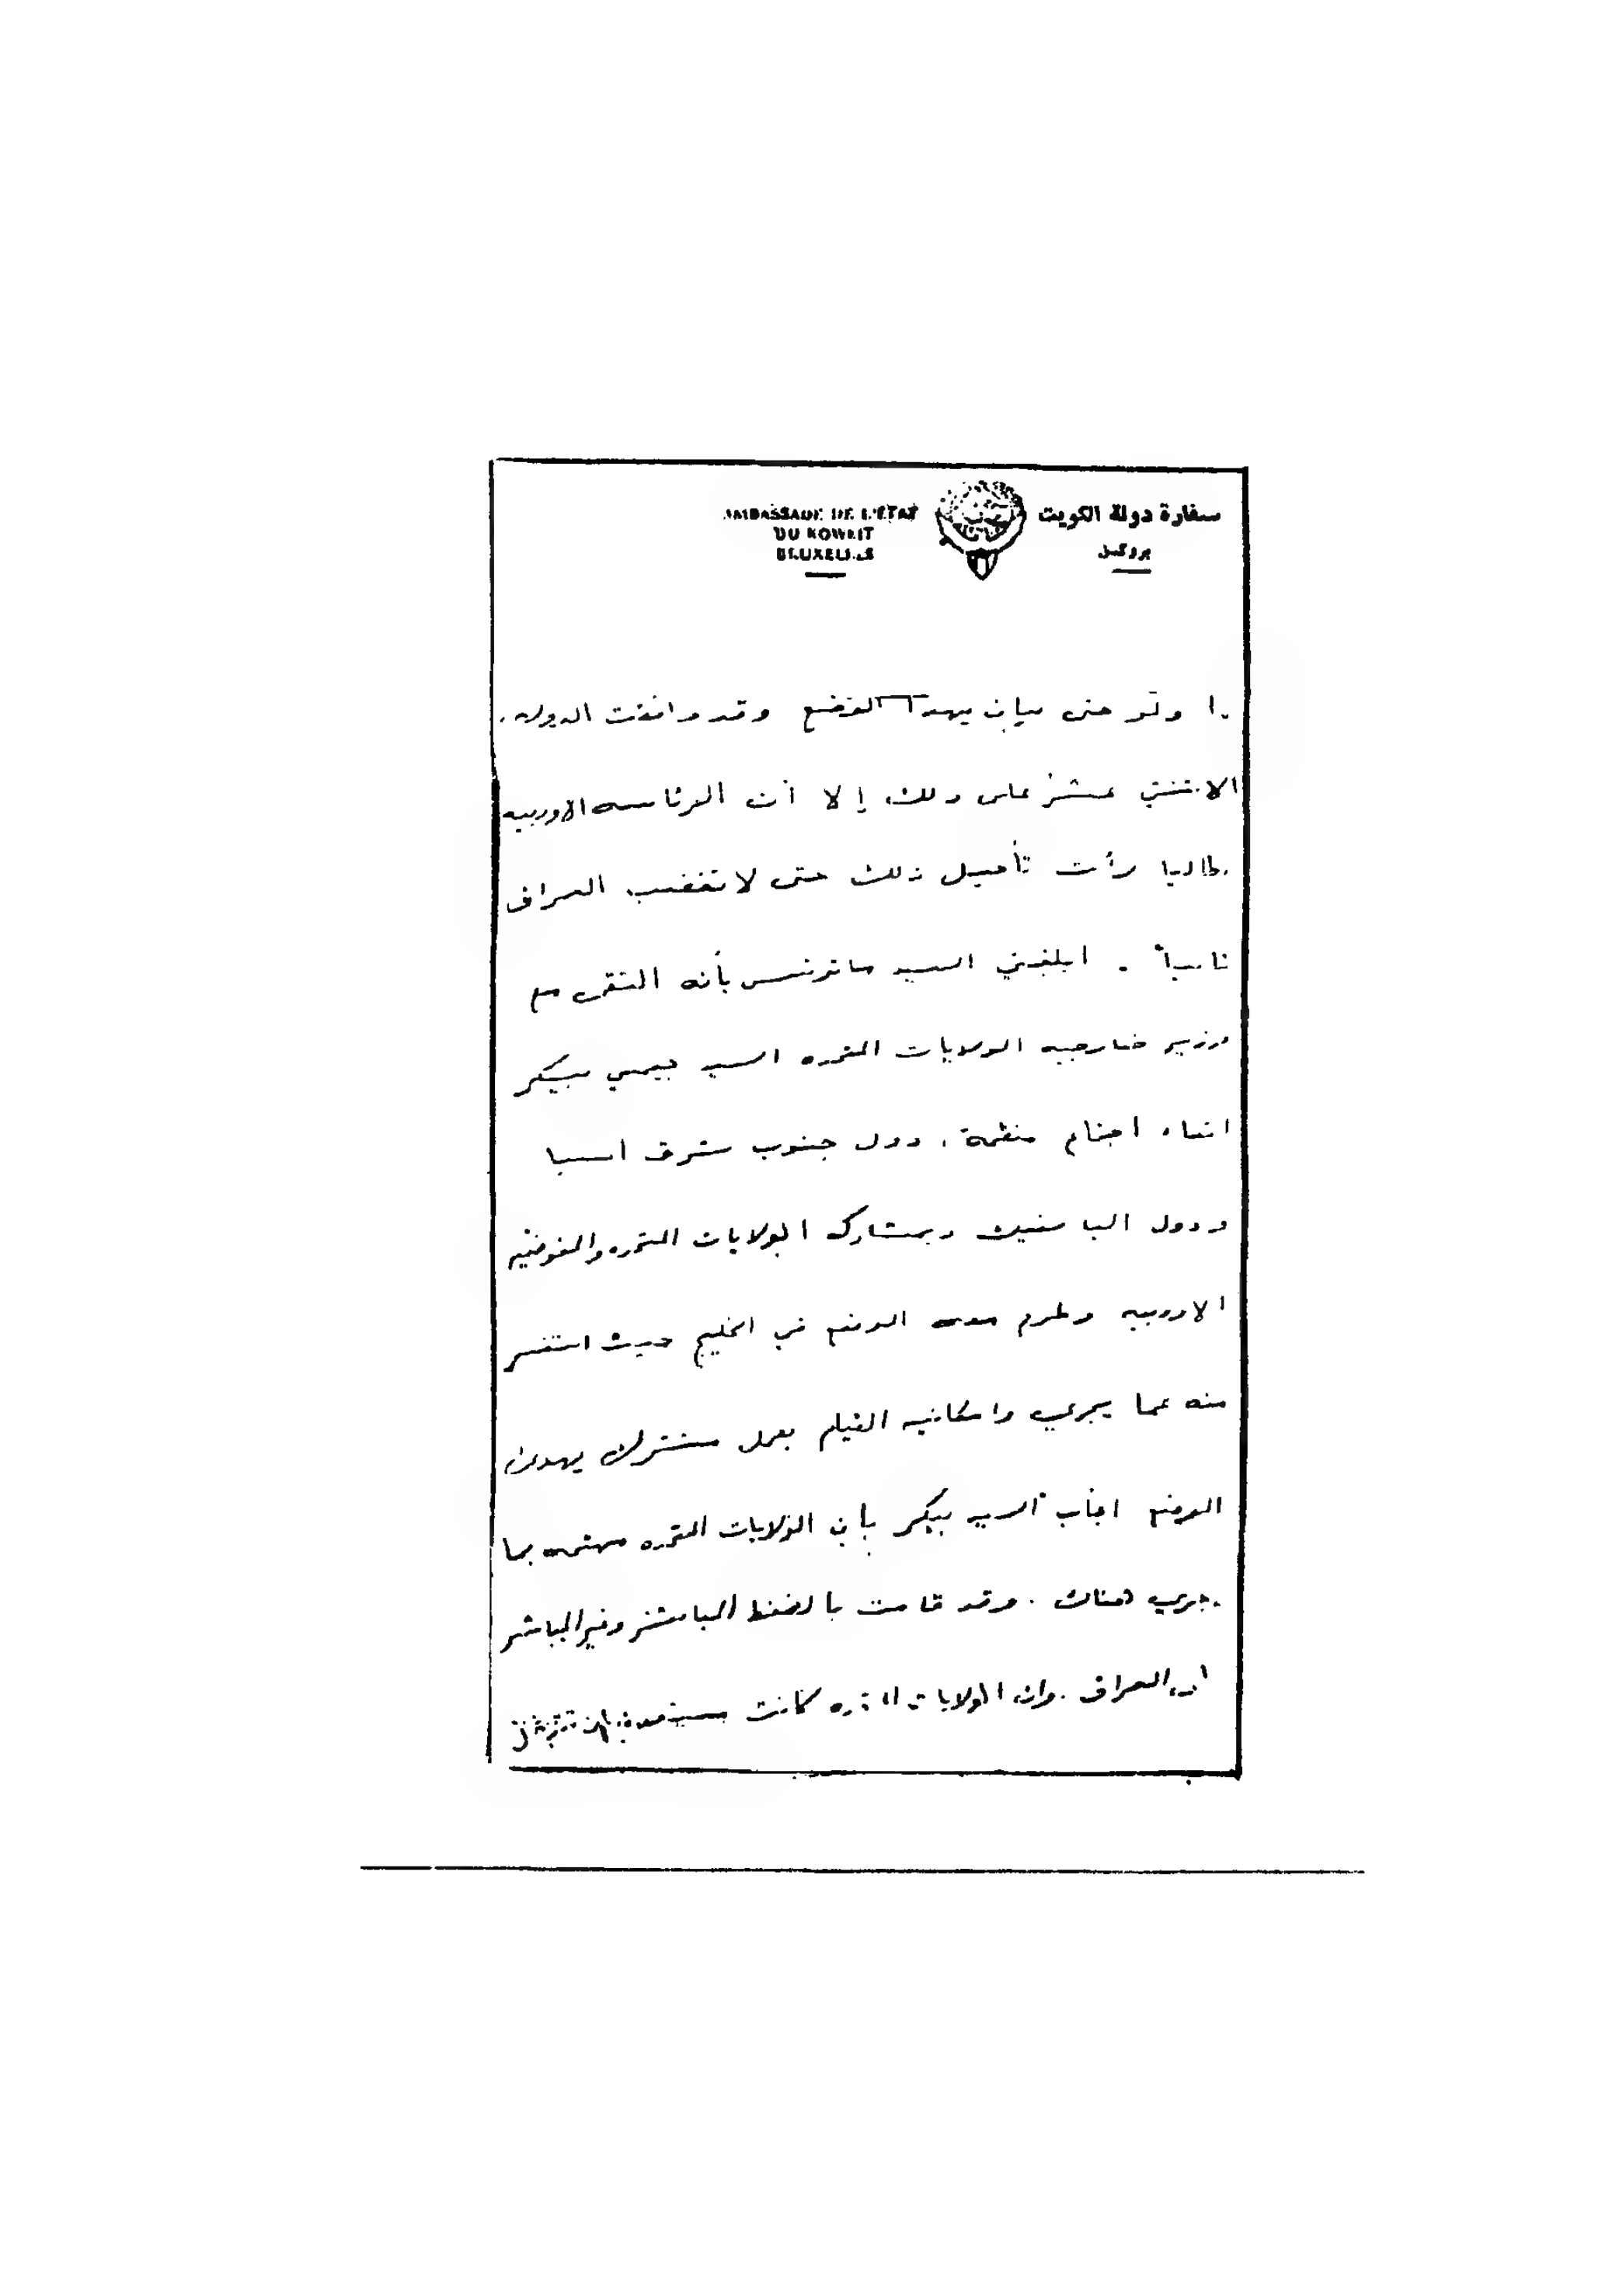 سفارة دولة الكويت
بروكسل
AMBASSADE DE L'ETAT
DU KOWEIT
BRUXELLES
ولو حتى بيان يهدأ الوضع وقد وافقت الدول
الاثنتي عشر على ذلك إلا أن الرئاسه الاوربيه
ايطاليا رأت تأجيل ذلك حتى لا تغضب العراق
ثانياً . ابلغني السيد ماتونس بأنه التقى مع
وزير خارجيه الولايات المتحده السيد جيمس بيكر
اثناء اجتماع منظمة دول جنوب شرق اسيا
ودول الباسفيك وبمشاركه الولايات المتحده والمفوضيه
الاوربيه وطرح معه الوضع في الخليج حيث استفسر
منه عما يجري وامكانيه القيام بعمل مشترك يهدئ
الوضع اجاب السيد بيكر بأن الولايات المتحده مهتمه بما
يجري هناك . وقد قامت بالضغط المباشر وغير المباشر
العراق . وان الولايات المتحده كانت